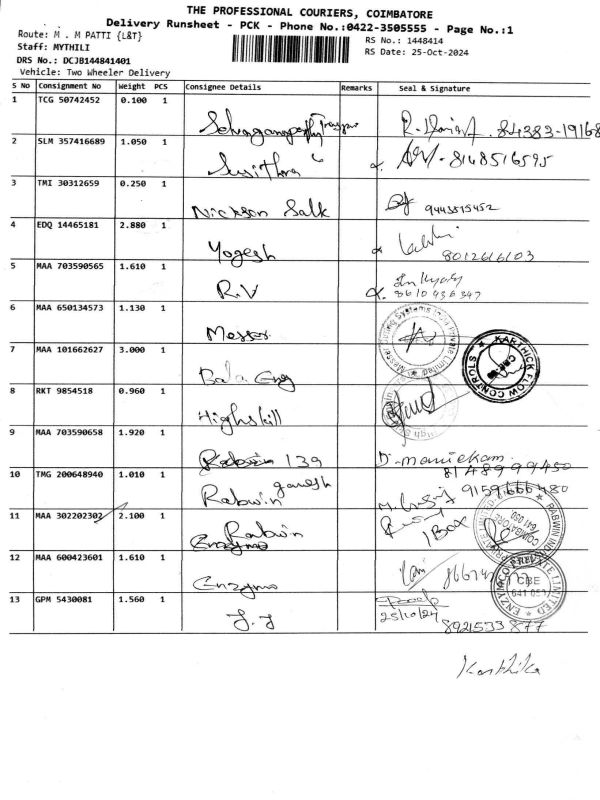 THE PROFESSIONAL COURIERS, COIMBATORE
Delivery Runsheet - PCK - Phone No.:0422-3505555 - Page No.:1
Route: M . M PATTI {L&T}
RS No.: 1448414
Staff: MYTHILI
RS Date: 25-Oct-2024
DRS No.: DCJB144841401
Vehicle: Two Wheeler Delivery
S No Consignment No Weight PCS Consignee Details Remarks Seal & Signature
1 TCG 50742452 0.100 1 84383-19168
2 SLM 357416689 1.050 1 Susithra 8148516595
3 TMI 30312659 0.250 1 Nickson Salk 9443515452
4 EDQ 14465181 2.880 1 Yogesh 8012616103
5 MAA 703590565 1.610 1 R.V 8610936347
6 MAA 650134573 1.130 1 Messer
7 MAA 101662627 3.000 1 Bala Eng KARTHICK FLOW CONTROLS
8 RKT 9854518 0.960 1 Highskill
9 MAA 703590658 1.920 1 139 D. Manickam 8148999450
10 TMG 200648940 1.010 1 Rabwin ganesh 9159666480
11 MAA 302202302 2.100 1 Rabwin 1 Box
12 MAA 600423601 1.610 1 Enzymo ENZYMCO PRIVATE LIMITED CBE
13 GPM 5430081 1.560 1 J.J 25/10/24 8921533877
Karthika